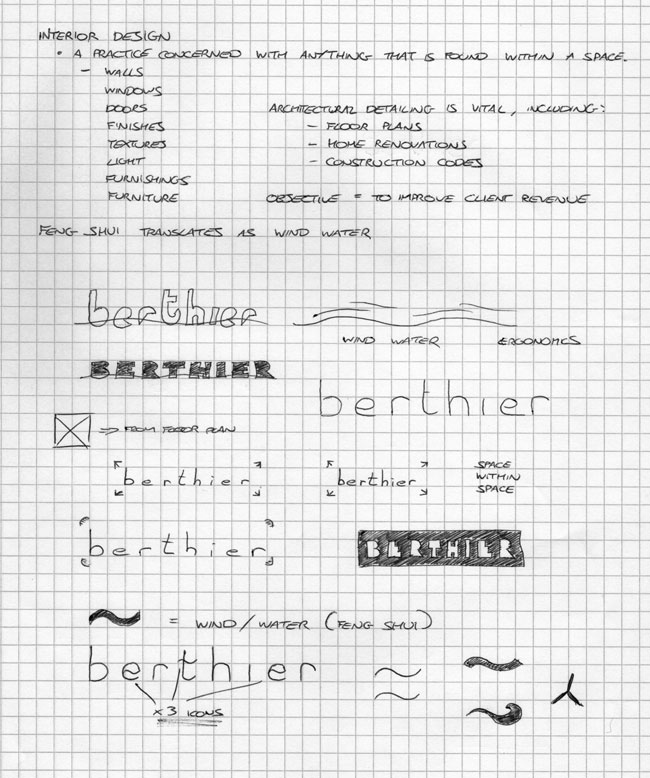 INTERIOR DESIGN
• A PRACTICE CONCERNED WITH ANYTHING THAT IS FOUND WITHIN A SPACE.
– WALLS
WINDOWS
DOORS
FINISHES
TEXTURES
LIGHT
FURNISHINGS
FURNITURE
ARCHITECTURAL DETAILING IS VITAL, INCLUDING:
– FLOOR PLANS
– HOME RENOVATIONS
– CONSTRUCTION CODES
OBJECTIVE = TO IMPROVE CLIENT REVENUE
FENG SHUI TRANSLATES AS WIND WATER
berthier
WIND WATER ERGONOMICS
BERTHIER
berthier
⇒ FROM FLOOR PLAN
berthier
berthier
SPACE
WITHIN
SPACE
berthier
BERTHIER
~ = WIND/WATER (FENG SHUI)
berthier
x3 ICONS